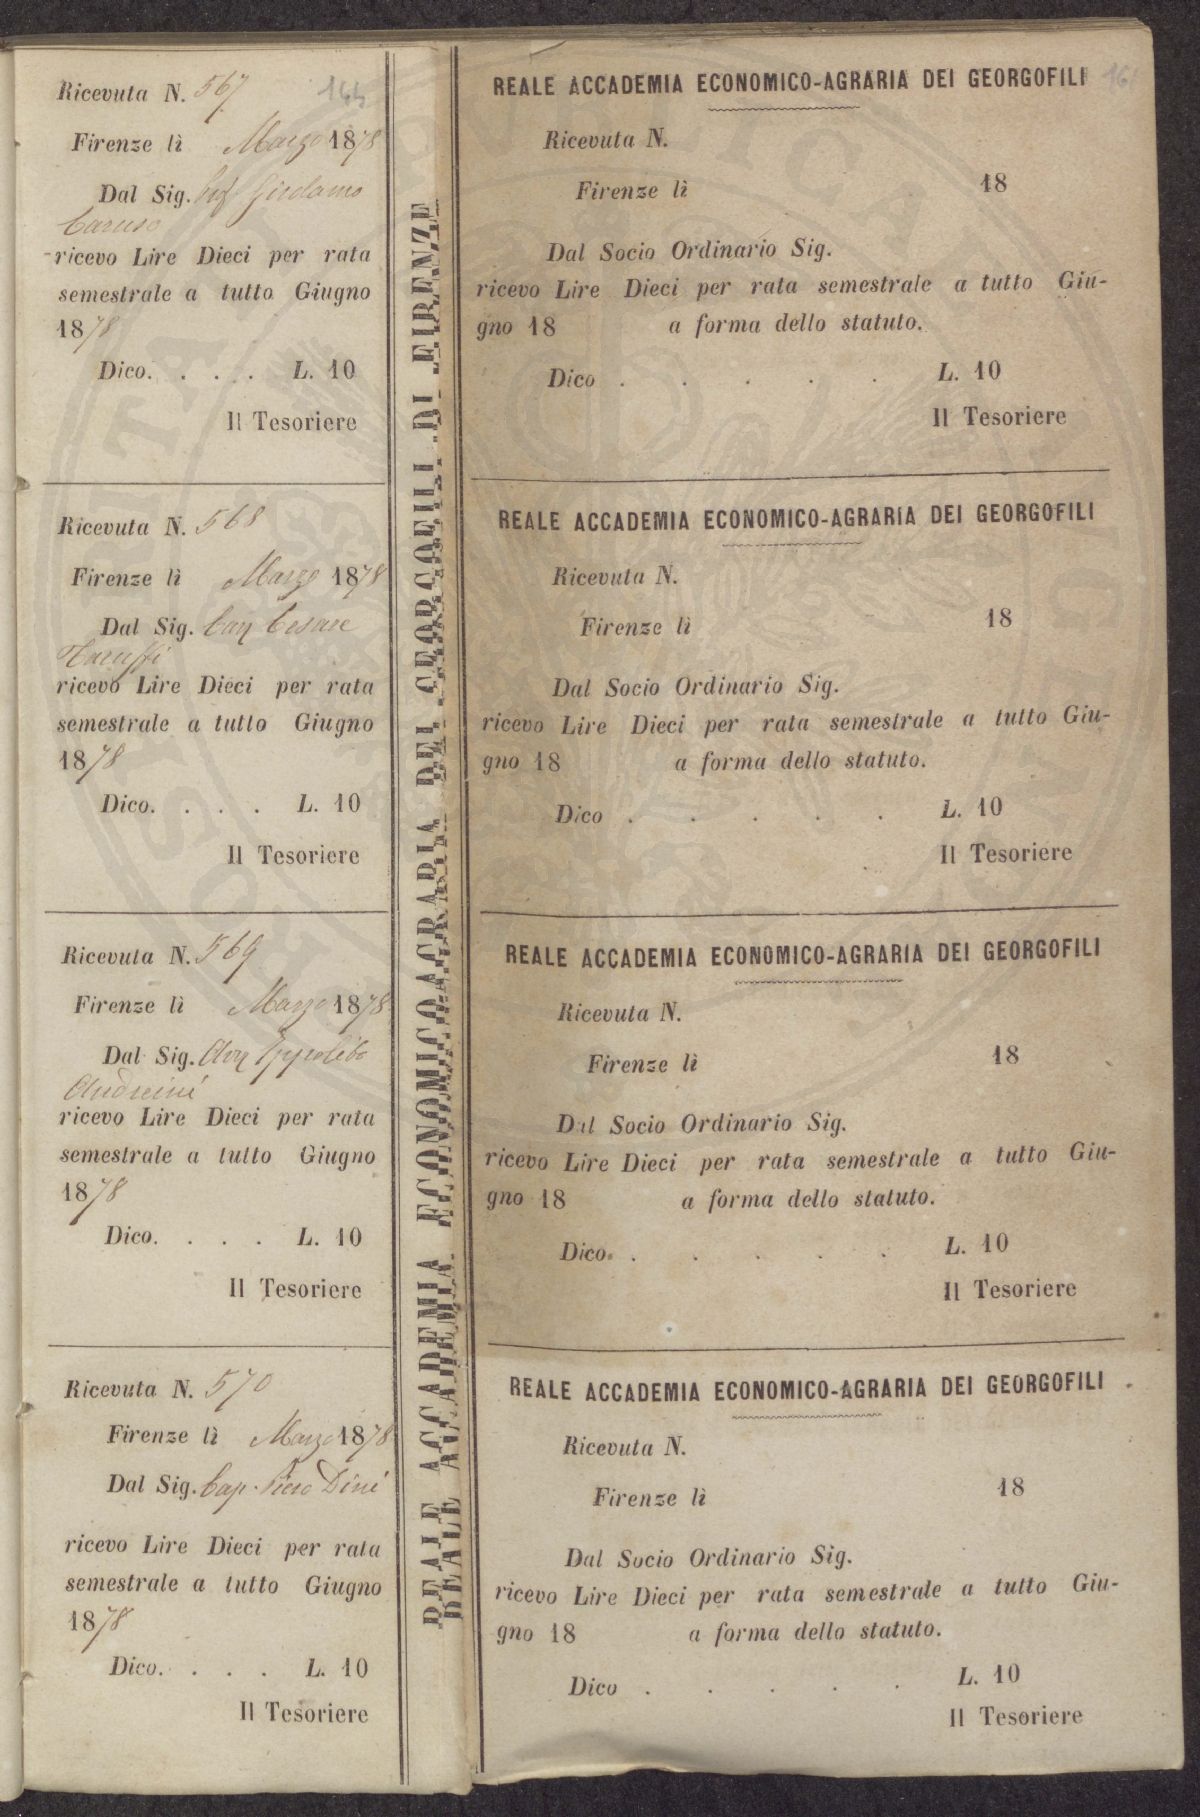 Ricevuta N. 567
144
Firenze lì Marzo 1878
Dal Sig. Girolamo
Caruso
ricevo Lire Dieci per rata
semestrale a tutto Giugno
1878
Dico. . . . . L. 10
Il Tesoriere
Ricevuta N. 568
Firenze lì Marzo 1878
Dal Sig. Cesare
Taruffi
ricevo Lire Dieci per rata
semestrale a tutto Giugno
1878
Dico. . . . L. 10
Il Tesoriere
Ricevuta N. 569
Firenze lì Marzo 1878
Dal Sig. Avv Ippolito
Andreini
ricevo Lire Dieci per rata
semestrale a tutto Giugno
1878
Dico. . . . L. 10
Il Tesoriere
Ricevuta N. 570
Firenze lì Marzo 1878
Dal Sig. Cap. Piero Dini
ricevo Lire Dieci per rata
semestrale a tutto Giugno
1878
Dico. . . . L. 10
Il Tesoriere
REALE ACCADEMIA ECONOMICO-AGRARIA DEI GEORGOFILI DI FIRENZE
REALE ACCADEMIA ECONOMICO-AGRARIA DEI GEORGOFILI
Ricevuta N.
Firenze lì 18
Dal Socio Ordinario Sig.
ricevo Lire Dieci per rata semestrale a tutto Giu-
gno 18 a forma dello statuto.
Dico . . . . . L. 10
Il Tesoriere
REALE ACCADEMIA ECONOMICO-AGRARIA DEI GEORGOFILI
Ricevuta N.
Firenze lì 18
Dal Socio Ordinario Sig.
ricevo Lire Dieci per rata semestrale a tutto Giu-
gno 18 a forma dello statuto.
Dico . . . . . L. 10
Il Tesoriere
REALE ACCADEMIA ECONOMICO-AGRARIA DEI GEORGOFILI
Ricevuta N.
Firenze lì 18
Dal Socio Ordinario Sig.
ricevo Lire Dieci per rata semestrale a tutto Giu-
gno 18 a forma dello statuto.
Dico. . . . . . L. 10
Il Tesoriere
REALE ACCADEMIA ECONOMICO-AGRARIA DEI GEORGOFILI
Ricevuta N.
Firenze lì 18
Dal Socio Ordinario Sig.
ricevo Lire Dieci per rata semestrale a tutto Giu-
gno 18 a forma dello statuto.
Dico . . . . . L. 10
Il Tesoriere